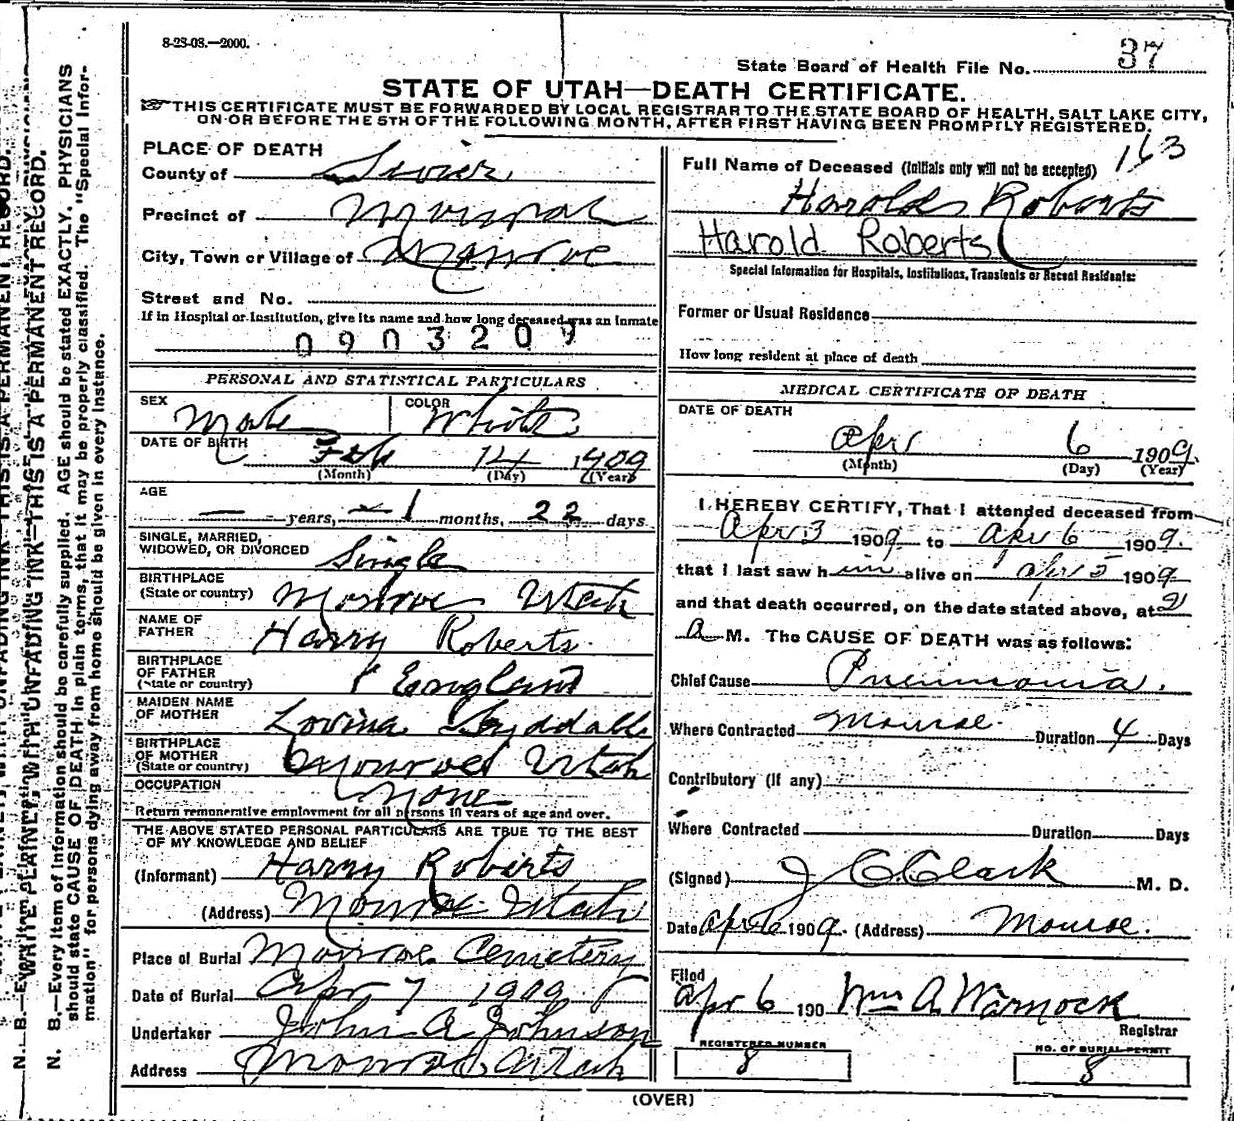 8-23-08.—2000.
State Board of Health File No. 37
STATE OF UTAH—DEATH CERTIFICATE.
THIS CERTIFICATE MUST BE FORWARDED BY LOCAL REGISTRAR TO THE STATE BOARD OF HEALTH, SALT LAKE CITY,
ON OR BEFORE THE 5TH OF THE FOLLOWING MONTH, AFTER FIRST HAVING BEEN PROMPTLY REGISTERED.
PLACE OF DEATH
County of Sevier
Precinct of
City, Town or Village of Monroe
Street and No.
If in Hospital or Institution, give its name and how long deceased was an inmate
0903209
PERSONAL AND STATISTICAL PARTICULARS
SEX Male COLOR White
DATE OF BIRTH
Feb 14 1909
(Month) (Day) (Year)
AGE
— years, 1 months, 22 days
SINGLE, MARRIED,
WIDOWED, OR DIVORCED Single
BIRTHPLACE
(State or country) Monroe Utah
NAME OF
FATHER Harry Roberts
BIRTHPLACE
OF FATHER
(State or country) England
MAIDEN NAME
OF MOTHER Lovina
BIRTHPLACE
OF MOTHER
(State or country) Monroe Utah
OCCUPATION
None
Return remunerative employment for all persons 10 years of age and over.
THE ABOVE STATED PERSONAL PARTICULARS ARE TRUE TO THE BEST
OF MY KNOWLEDGE AND BELIEF
(Informant) Harry Roberts
(Address) Monroe Utah
Place of Burial Monroe Cemetery
Date of Burial Apr 7 1909
Undertaker John A Johnson
Address Monroe Utah
163
Full Name of Deceased (Initials only will not be accepted)
Harold Roberts
Harold Roberts
Special Information for Hospitals, Institutions, Transients or Recent Residents:
Former or Usual Residence
How long resident at place of death
MEDICAL CERTIFICATE OF DEATH
DATE OF DEATH
Apr 6 1909.
(Month) (Day) (Year)
I HEREBY CERTIFY, That I attended deceased from
Apr 3 1909 to Apr 6 1909.
that I last saw him alive on Apr 5 1909
and that death occurred, on the date stated above, at
A M. The CAUSE OF DEATH was as follows:
Chief Cause Pneumonia.
Where Contracted Monroe. Duration 4 Days
Contributory (if any)
Where Contracted Duration Days
(Signed) J C Clark M. D.
Date Apr 6 1909. (Address) Monroe.
Filed
Apr 6 190 Wm A Warnock
Registrar
REGISTERED NUMBER
8
NO. OF BURIAL PERMIT
8
(OVER)
WRITE PLAINLY, WITH UNFADING INK—THIS IS A PERMANENT RECORD.
N. B.—Every item of information should be carefully supplied. AGE should be stated EXACTLY. PHYSICIANS
should state CAUSE OF DEATH in plain terms, that it may be properly classified. The "Special Infor-
mation" for persons dying away from home should be given in every instance.